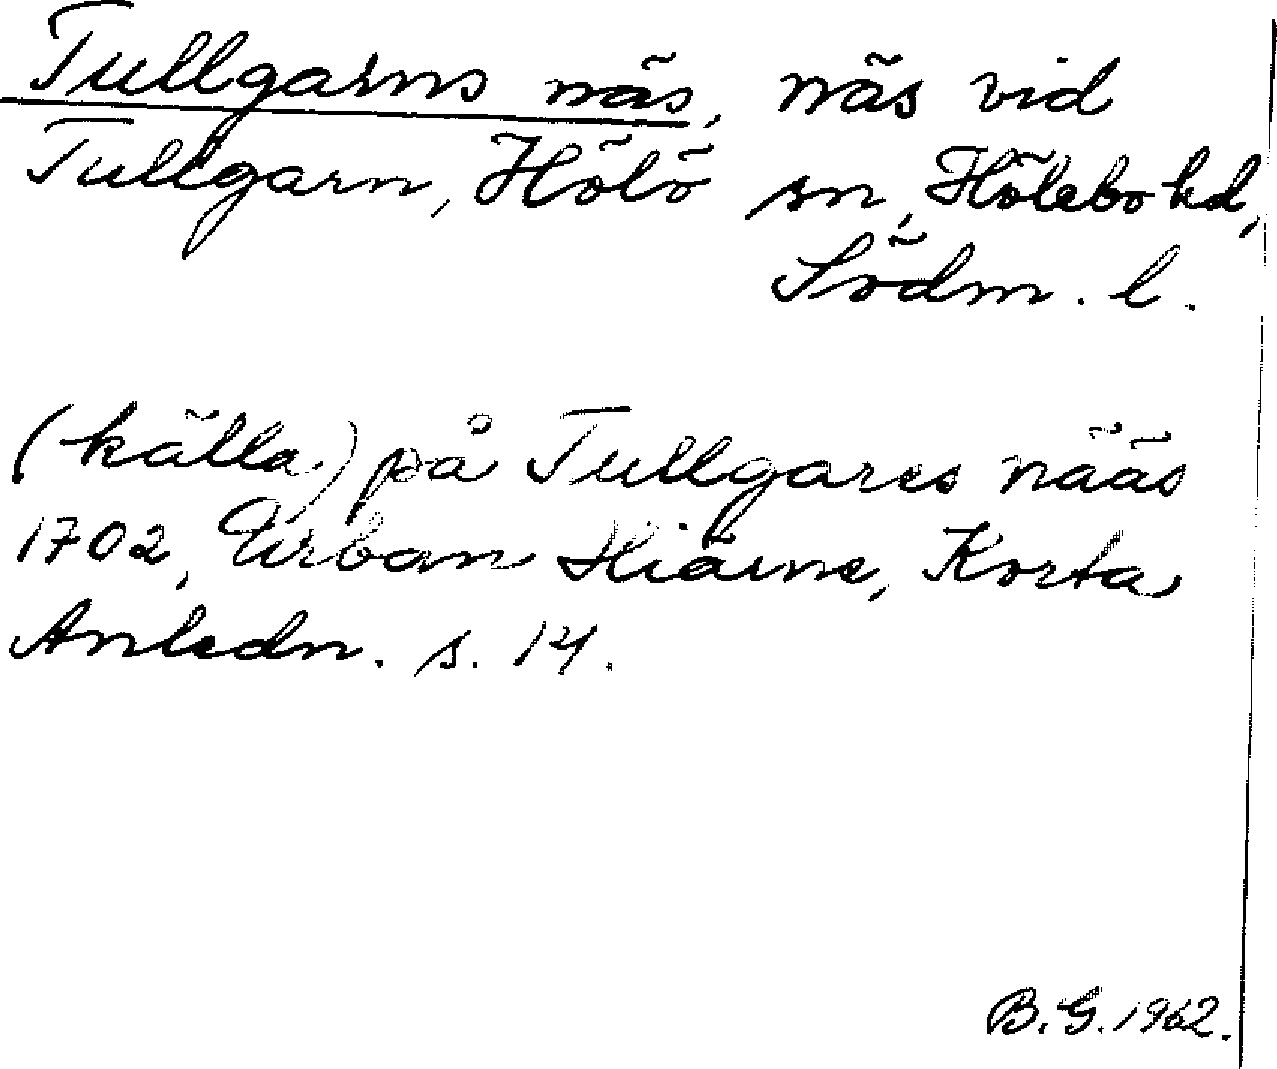 Tullgarns näs, näs vid
Tullgarn, Hölö sn, Hölebo hd,
Södm. l.
(källa) på Tullgares nääs
1702, Urban Hiärne, Korta
Anledn. s. 14.
B. G. 1962.